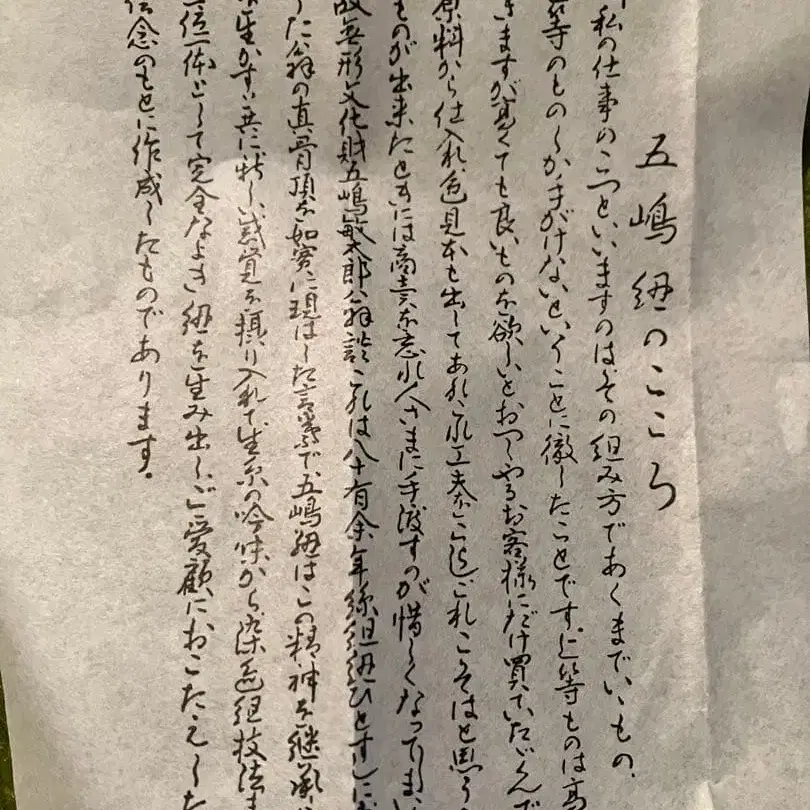 五嶋紐のこころ
私の仕事の二つといいますのはその組み方であくまでいいもの、
等のものしか手がけないということに徹したことです。上等ものは高
きますが高くても良いものを欲しいとおっしゃるお客様にだけ買っていたゞくんで
原料から仕入れ、色見本も出してあれこれ工奏しこれこそはと思う
ものが出来たときには商売を忘れ人さまに手渡すのが惜しくなってしまい
故無形文化財五嶋敏太郎翁談 これは八十有余年絲組紐ひとすじに
た翁の真骨頂を如実に現はした言葉で、五嶋紐はこの精神を継承
生かすと共に新しい感覚を摂り入れて生糸の吟味から染色組技法
三位一体として完全なよき紐を生み出し、ご愛顧におこたえした
念のもとに作成したものであります。